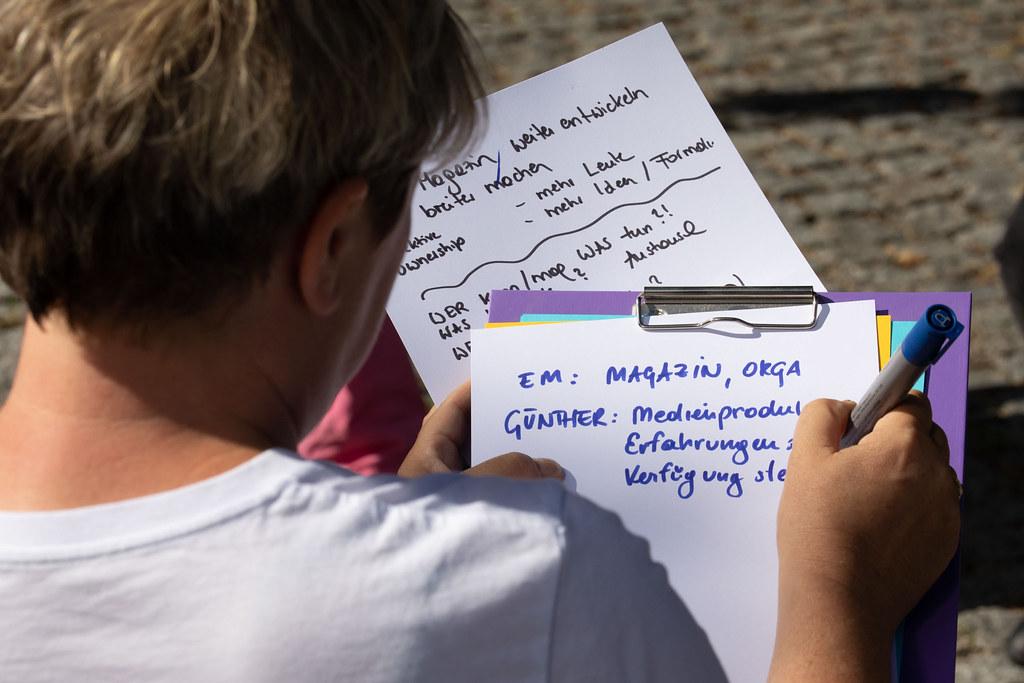 Magazin / weiter entwickeln
breiter machen
- mehr Leute
- mehr Iden / Formate
ownership
WER kann/mag WAS tun?!
WAS Austausch
EM: MAGAZIN, ORGA
GÜNTHER: Medienproduk
Erfahrungen z
Verfügung ste